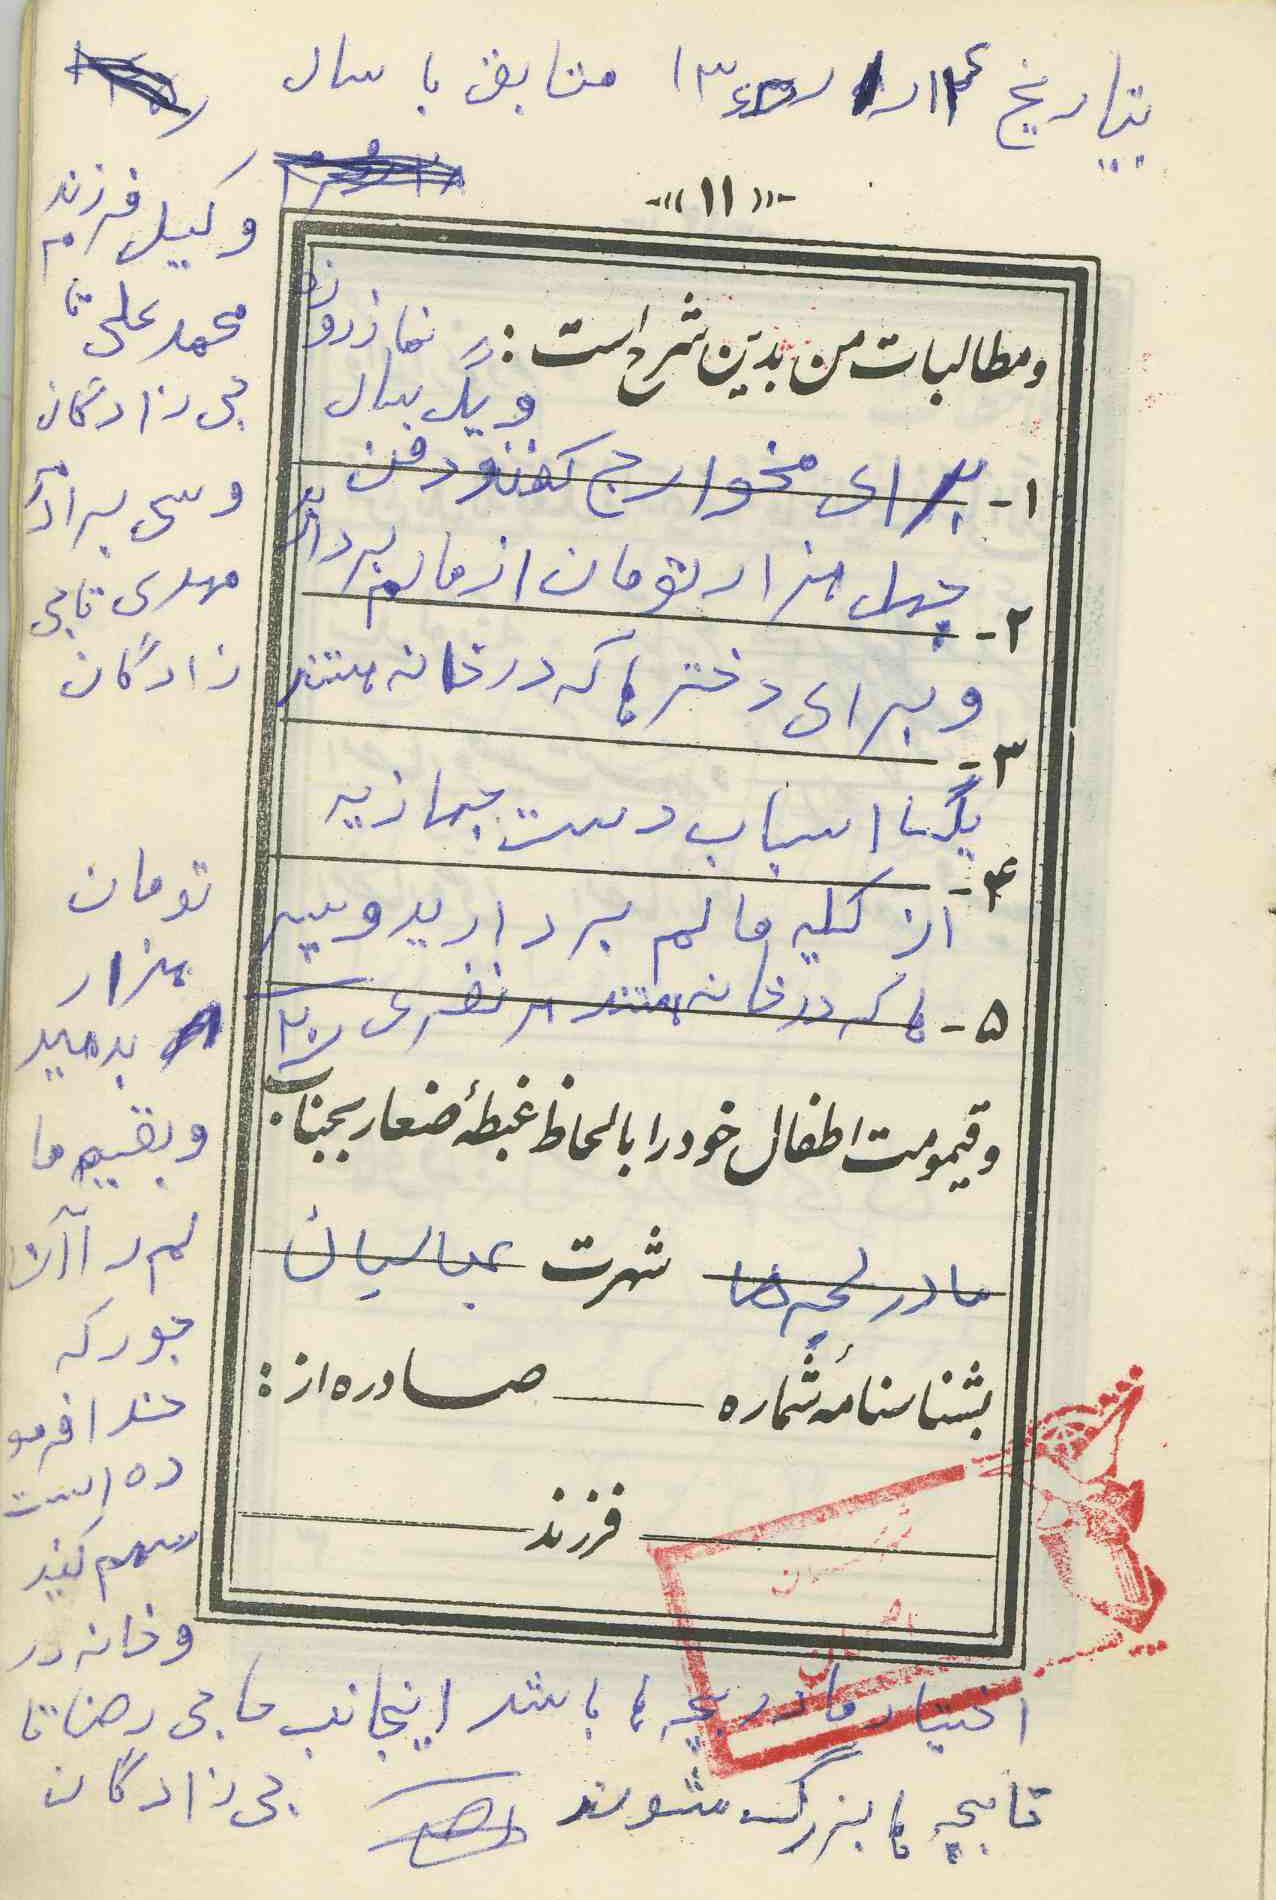 بتاریخ متابق با سال
-«۱۱»-
و مطالبات من بدین شرح است : نماز روزه
و یک سال
۱- برای مخوارج کفن و دفن
چهل هزار تومان از مالم بردارید
۲-
و برای دخترها که در خانه هستند
۳-
یکتا اسباب دست جهازیه
۴-
از کلیه مالم بردارید و سپر
۵- ها که در خانه هستند هر نفری ۲۰
و قیمومت اطفال خود را با لحاظ غبطهٔ ضعار بجناب
مادر بچه ها شهرت عباسیان
بشناسنامهٔ شماره صادره از :
فرزند
وکیل فرزندم
محمد علی تا
جی زادگان
و سی برادرم
مهدی تاجی
زادگان
تومان
هزار
بدهید
و بقییه ما
لم را آن
جور که
خدا فرمو
ده است
سهم کنید
و خانه در
اختیار مادر بچه ها باشد اینجانب حاجی رضا تا
تا بچه ها بزرگ شوند جی زادگان